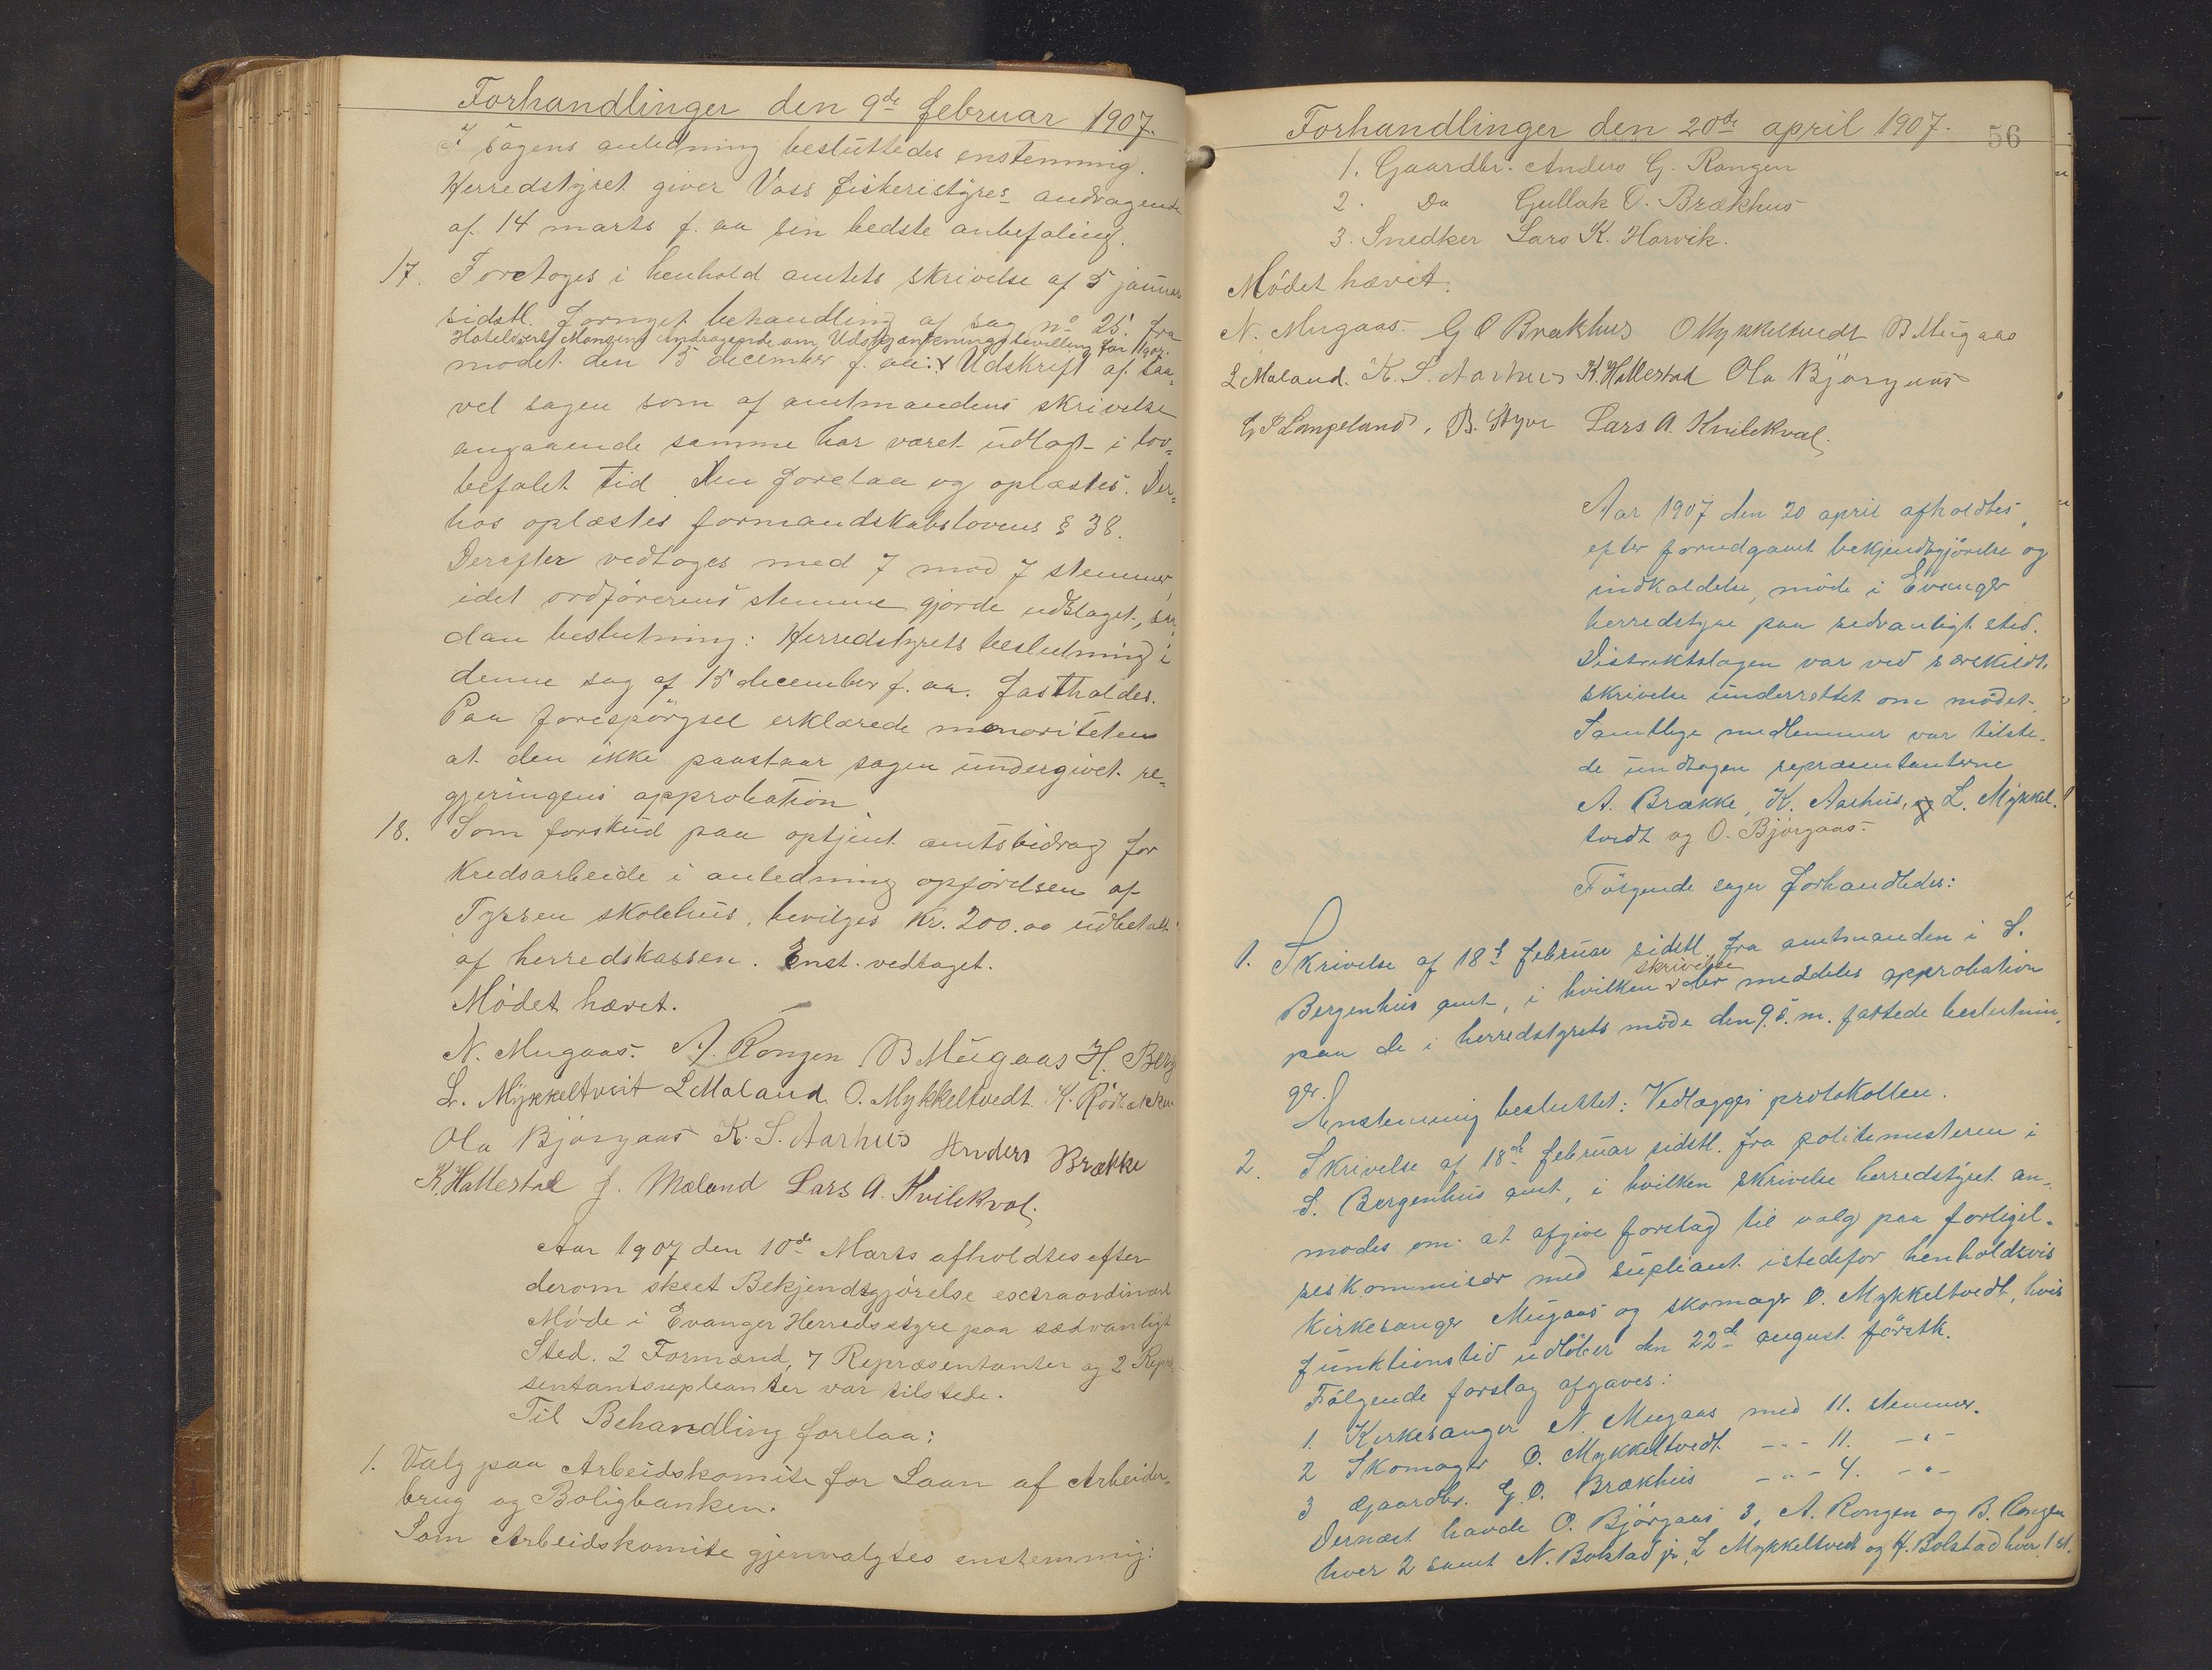 Forhandlinger den 9de februar 1907.
I sagens anledning besluttedes enstemmig.
Herredstyret giver Voss fiskeristyres andragende
af 14 marts f. aa sin bedste anbefaling.
17. Foretoges i henhold amtets skrivelse af 5 januar
sidstl. fornyet behandling af sag no 25. fra
Hotelvert Monsens Andragende om Udskjænkningsbevilling for 1907.
mødet den 15 december f. aa: Udskrift af saa-
vel sagen som af amtmandens skrivelse
angaaende samme har været udlagt i lov-
befalet tid. Den forelaa og oplæstes. Der-
hos oplæstes formandskabslovens § 38.
Derefter vedtoges med 7 mod 7 stemmer,
idet ordførerens stemme gjorde udslaget, saa-
dan beslutning: Herredstyrets beslutning i
denne sag af 15 december f. aa. fastholdes.
Paa forespørgsel erklærede menoriteten
at den ikke paastaar sagen undergivet re-
gjeringens approbation
18. Som forskud paa optjent amtsbidrag for
Kredsarbeide i anledning opførelsen af
Tyssen skolehus, bevilges kr. 200.00 udbetalt
af herredskassen. Enst. vedtaget.
Mødet hævet.
N. Mugaas. A. Rongen B Mugaas H. Berg
L. Mykkeltveit L Mæland O. Mykkeltvedt K. Rødbækken
Ola Bjørgaas K. S. Aarhus Anders Brække
K. Hallestad J. Mæland Lars A. Kvilekval.
Aar 1907 den 10de Marts afholdtes efter
derom skeet Bekjendtgjørelse extraordinært
Møde i Evanger Herredsstyre paa sædvanligt
Sted. 2 Formænd, 7 Repræsentanter og 2 Repræ
sentantsupleanter var tilstede.
Til Behandling forelaa:
1. Valg paa Arbeidskomite for Laan af Arbeider-
brug og Boligbanken.
Som Arbeidskomite gjenvalgtes enstemmig:
Forhandlinger den 20de april 1907. 56
1. Gaardbr. Anders G. Rongen
2. Do Gullak O. Brækhus
3. Snedker Lars K. Horvik.
Mødet hævet.
N. Mugaas. G O Brækhus O Mykkeltvedt B Mugaas
L Mæland. K. S. Aarhus K. Hallestad Ola Bjørgaas
B. Styve Lars A. Kvilekval.
Aar 1907 den 20 april afholdtes,
efter forudgaaet bekjendtgjørelse og
indkaldelse, møde i Evanger
herredstyre paa sedvanligt sted.
Distriktslægen var ved særskildt
skrivelse underrettet om mødet.
Samtlige medlemmer var tilste-
de undtagen repræsentanterne
A. Brække, K. Aarhus, og L. Mykkel-
tvedt og O. Bjørgaas.
Følgende sager forhandledes:
1. Skrivelse af 18de februar sidstl. fra amtmanden i S.
Bergenhus amt, i hvilken skrivelse der meddeles approbation
paa de i herredstyrets møde den 9. s. m. fattede beslutnin-
ger.
Enstemmig besluttet: Vedlægges protokollen.
2. Skrivelse af 18de februar sidstl. fra politemesteren i
S. Bergenhus amt, i hvilken skrivelse herredstyret an-
modes om at afgive forslag til valg paa forligel-
seskommisær med supleant istedefor henholdsvis
Kirkesanger Mugaas og skomager O. Mykkeltvedt, hvis
funktionstid udløber den 22de august førstk.
Følgende forslag afgaves:
1. Kirkesanger N. Mugaas med 11. stemmer.
2 Skomager O. Mykkeltvedt -"- 11. -"-
3 Gaardbr. G. O. Brækhus -"- 4. -"-
Dernæst havde O. Bjørgaas 3, A. Rongen og B. Rongen
hver 2 samt N. Bolstad jr, L Mykkeltvedt og H. Bolstad hver 1 st.